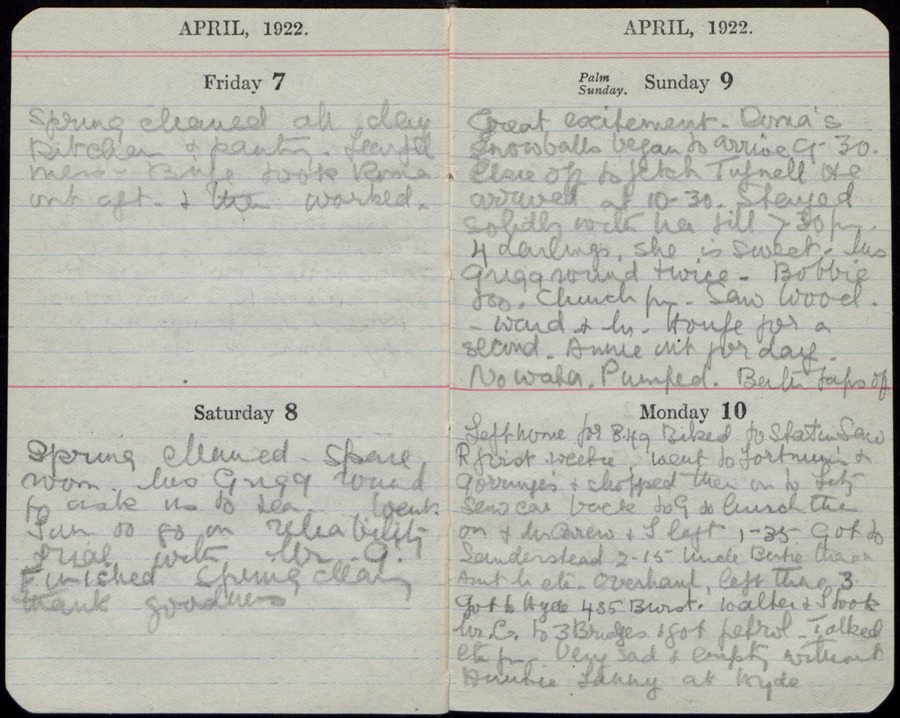 APRIL, 1922.
Friday 7
Spring cleaned all day
Kitchen & pantry. Fearful
mess - took Roma
out aft. & then worked.
Saturday 8
Spring cleaned - Spare
room. Mrs Grigg round
to ask us to tea. Went
to go on reliability
trial with Mr. G.
Finished Spring cleaning
thank goodness
APRIL, 1922.
Palm Sunday. Sunday 9
Great excitement. Roma's
Snowballs began to arrive 9-30.
off to fetch Tufnell He
arrived at 10-30. Stayed
solidly with her till 7-30 pm.
4 darlings, she is sweet. Mrs
Grigg round twice - Bobbie
too. Church pm. Saw Wood.
- ward & in. House for a
second. Annie out for day.
No water. Pumped. taps off
Monday 10
Left home for 8.49 Biked to Station Saw
R first went to Fortnum's &
Gorringes & shopped then on to
Saw car back to G to lunch then
on & Mr Carew & I left 1-35 Got to
Sanderstead 2-15 Uncle Bertie there
Aunt L etc. Overhaul, left there 3
got to Hyde 435 Burst. Walter & I took
Mr. C. to 3 Bridges & got petrol. Talked
etc pm. Very sad & empty without
Auntie Fanny at Hyde